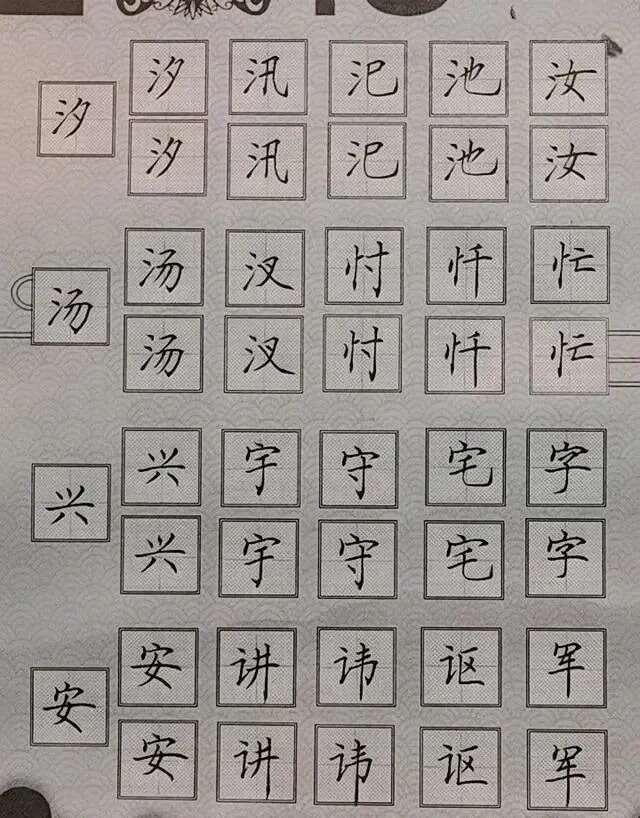 汐
汐 汛 汜 池 汝
汐 汛 汜 池 汝
汤
汤 汊 忖 忏 忙
汤 汊 忖 忏 忙
兴
兴 宇 守 宅 字
兴 宇 守 宅 字
安
安 讲 讳 讴 军
安 讲 讳 讴 军